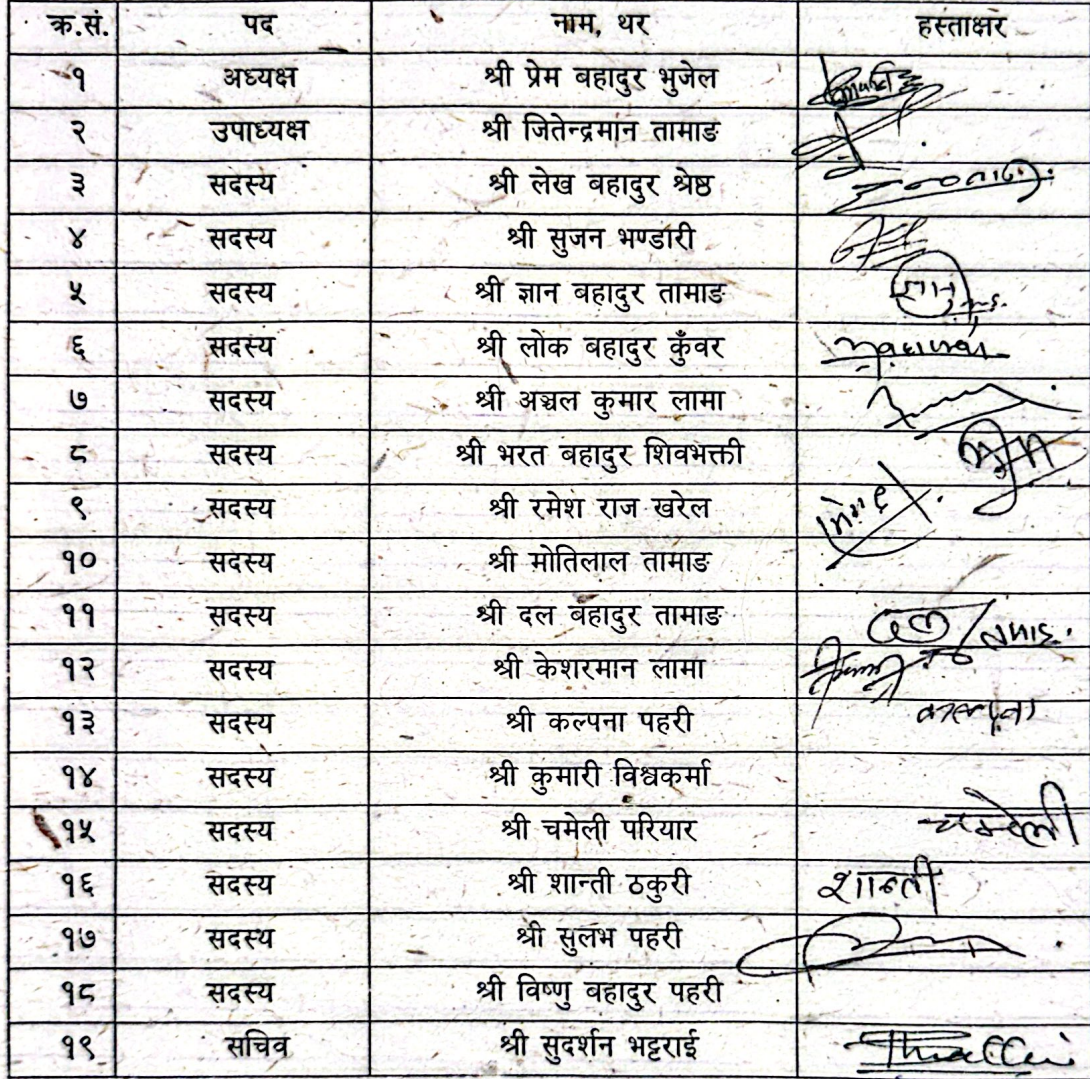 क्र.सं. पद नाम, थर हस्ताक्षर
१ अध्यक्ष श्री प्रेम बहादुर भुजेल
२ उपाध्यक्ष श्री जितेन्द्रमान तामाङ
३ सदस्य श्री लेख बहादुर श्रेष्ठ
४ सदस्य श्री सुजन भण्डारी
५ सदस्य श्री ज्ञान बहादुर तामाङ
६ सदस्य श्री लोक बहादुर कुँवर
७ सदस्य श्री अञ्चल कुमार लामा
८ सदस्य श्री भरत बहादुर शिवभक्ती
९ सदस्य श्री रमेश राज खरेल
१० सदस्य श्री मोतिलाल तामाङ
११ सदस्य श्री दल बहादुर तामाङ
१२ सदस्य श्री केशरमान लामा
१३ सदस्य श्री कल्पना पहरी कल्पना
१४ सदस्य श्री कुमारी विश्वकर्मा
१५ सदस्य श्री चमेली परियार चमेली
१६ सदस्य श्री शान्ती ठकुरी शान्ती
१७ सदस्य श्री सुलभ पहरी
१८ सदस्य श्री विष्णु बहादुर पहरी
१९ सचिव श्री सुदर्शन भट्टराई